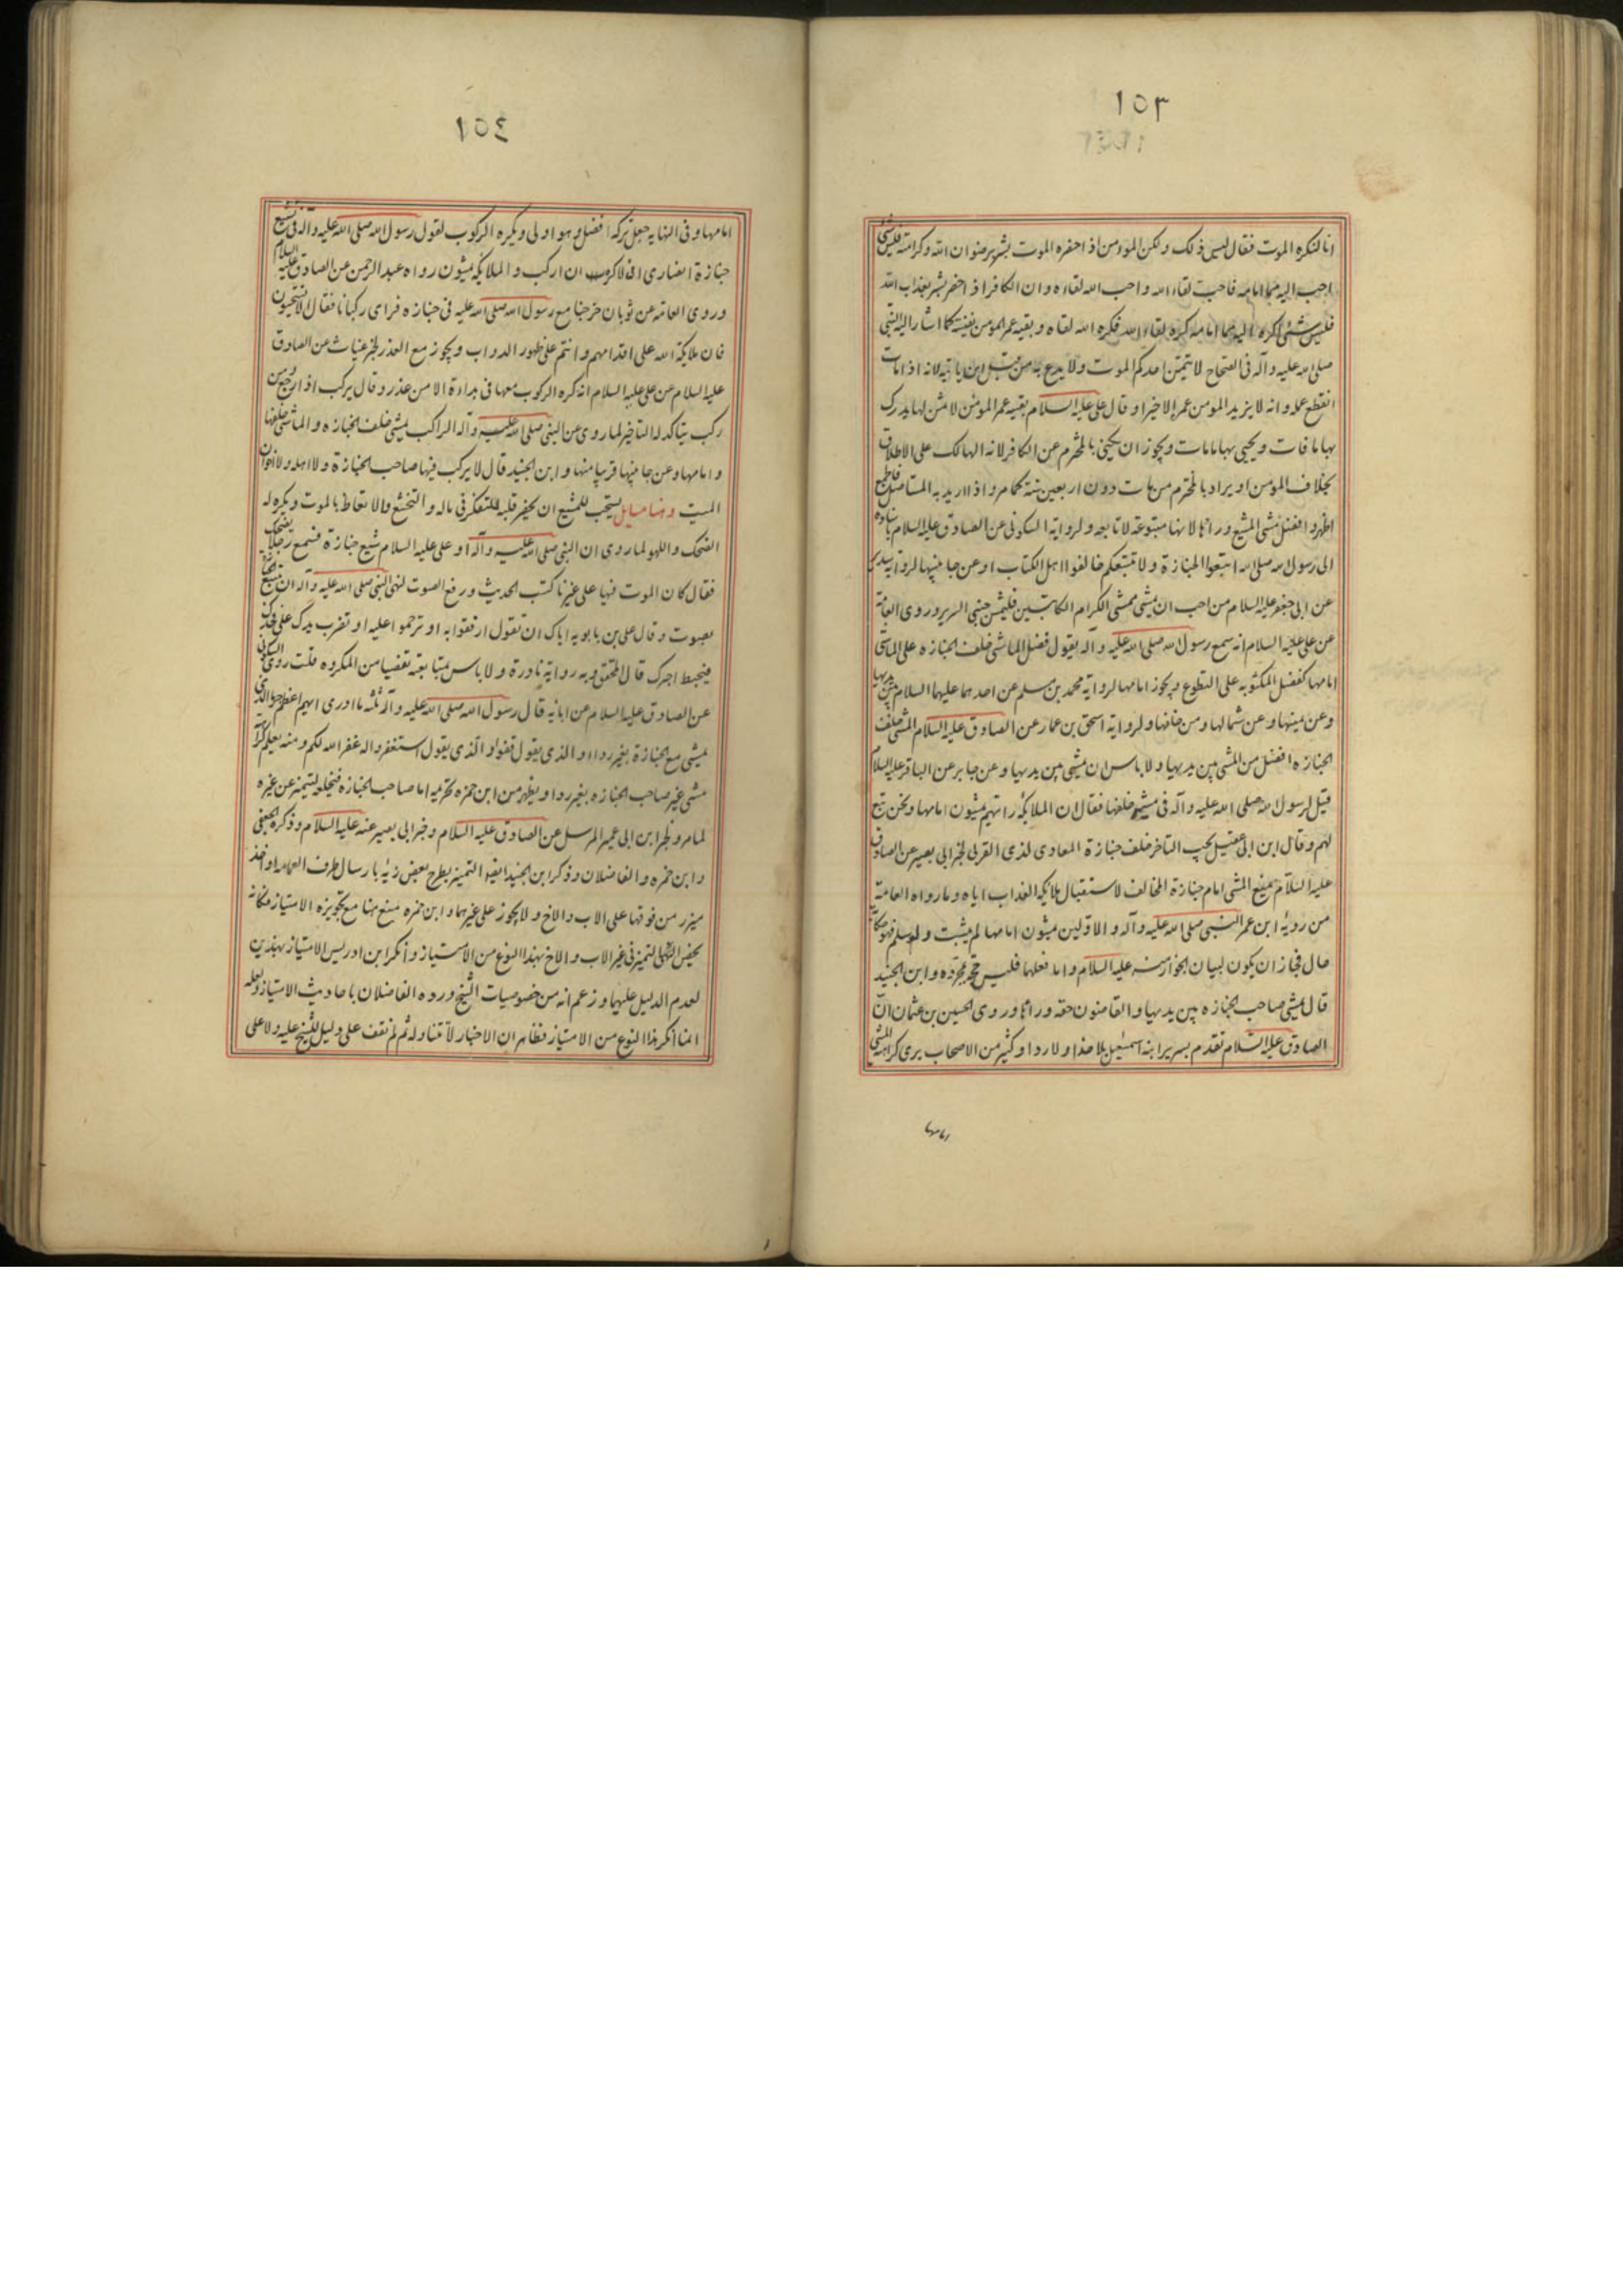 ١٥٣
انا لنكره الموت فقال ليس ذلك ولكن المؤمن اذا حضره الموت بشر برضوان الله وكرامته فليس شئ
احب اليه مما امامه فاحب لقاء الله واحب الله لقاءه وان الكافر اذا حضر بشر بعذاب الله
فليس شئ اكره اليه مما امامه كره لقاء الله فكره الله لقاه وبقيه عمر المؤمن نفيسة كما اشار اليه النبي
صلى الله عليه وآله في الصحاح لا يتمنى احدكم الموت ولا يدع به من قبل ان ياتيه لانه اذا مات
انقطع عمله وانه لا يزيد المومن عمره الا خيرا وقال على عليه السلام بقيه عمر المؤمن لا ثمن لها يدرك
بها ما فات ويحيى بها ما مات ويجوز ان يكنى بالمخترم عن الكافر لانه الهالك على الاطلاق
بخلاف المومن او يراد بالمخترم من مات دون اربعين سنة كما مر واذا اريد به المستاصل
اظهر وافضل مشى المشيع وراءها لانها متبوعة لا تابعه ولروايه السكونى عن الصادق عليه السلام باسناده
الى رسول الله صلى الله اتبعوا الجنازة ولا تتبعكم خالفوا اهل الكتاب او عن جانبيها لرواية سدير
عن ابى جعفر عليه السلام من احب ان يمشى ممشى الكرام الكاتبين فليمش جنبى السرير وروى العامة
عن على عليه السلام انه سمع رسول الله صلى الله عليه وآله يقول فضل الماشى خلف الجنازه على الماشى
امامها كفضل المكتوبه على التطوع ويجوز امامها لرواية محمد بن مسلم عن احدهما عليهما السلام بين يديها
وعن يمينها وعن شمالها ومن خلفها ولرواية اسحق بن عمار عن الصادق عليه السلام المشى خلف
الجنازه افضل من المشى بين يديها ولا باس ان يمشى بين يديها وعن جابر عن الباقر عليه السلام
قيل لرسول الله صلى الله عليه وآله في مشيه خلفها فقال ان الملائكه راتهم يمشون امامها ونحن تبع
لهم وقال ابن ابى عقيل يجب التاخر خلف جنازة المعادى لذى القربى لخبر ابى بصير عن الصادق
عليه السلام يمنع المشى امام جنازة المخالف لاستقبال ملائكه العذاب اياه وما رواه العامة
من روية ابن عمر النبى صلى الله عليه وآله والاولين يمشون امامها لم يثبت ولو سلم فهو حكاية
حال فجاز ان يكون لبيان الجواز منه عليه السلام واما فعلهما فليس حجة مجرده وابن الجنيد
قال يمشى صاحب الجنازه بين يديها والقاضون حقه وراءها وروى الحسين بن عثمان ان
الصادق عليه السلام تقدم سرير ابنه اسمعيل بلا حذا ولا ردا وكثير من الاصحاب يرى كراهه المشى
امامها
١٥٤
امامها وفى النهايه جعل تركه افضل وهو اولى ويكره الركوب لقول رسول الله صلى الله عليه وآله في تشيع
جنازة انصارى انى لاكره ان اركب والملائكه يمشون رواه عبد الرحمن عن الصادق عليه السلام
وروى العامة عن ثوبان خرجنا مع رسول الله صلى الله عليه في جنازه فراى ركبانا فقال الا تستحيون
فان ملائكة الله على اقدامهم وانتم على ظهور الدواب ويجوز مع العذر لخبر غياث عن الصادق
عليه السلام عن على عليه السلام انه كره الركوب معها فى بداءة الا من عذر وقال يركب اذا رجع ومن
ركب يتاكد له التاخير لما روى عن النبى صلى الله عليه وآله الراكب يمشى خلف الجنازه والماشى خلفها
وامامها وعن جانبيها قريبا منها وابن الجنيد قال لا يركب فيها صاحب الجنازة ولا اهله ولا اخوان
الميت وهنا مسايل يستحب للمشيع ان يحضر قلبه للتفكر في ماله والتخشع والاتعاظ بالموت ويكره له
الضحك واللهو لما روى ان النبى صلى الله عليه وآله او على عليه السلام شيع جنازة فسمع رجلا يضحك
فقال كان الموت فيها على غيرنا كتب الحديث ورفع الصوت لنهى النبى صلى الله عليه وآله ان تتبع الجنازة
بصوت وقال على بن بابويه اياك ان تقول ارفقوا به او ترحموا عليه او تضرب يدك على فخذك
فيحبط اجرك قال المحقق وبه رواية نادرة ولا باس بمتابعته تفصيا من المكروه قلت روى السكونى
عن الصادق عليه السلام عن ابائه قال رسول الله صلى الله عليه وآله ثلثه ما ادرى ايهم اعظم جرما الذى
يمشى مع الجنازة بغير ردا او الذى يقول قفوا او الذى يقول استغفروا له غفر الله لكم ومنه يعلم كراهة
مشى غير صاحب الجنازه بغير ردا ويظهر من ابن حمزه تحريمه اما صاحب الجنازه فيخلعه ليتميز عن غيره
لما مر ولخبر ابن ابى عمير المرسل عن الصادق عليه السلام وخبر ابى بصير عنه عليه السلام وذكره الجعفى
وابن حمزه والفاضلان وذكر ابن الجنيد ايضا التميز بطرح بعض زيه بارسال طرف العمامه او اخذ
ميزر من فوقها على الاب والاخ ولا يجوز على غيرهما وابن حمزه منع هنا مع تجويزه الامتياز فكانه
يخص التميز في غير الاب والاخ بهذا النوع من الامتياز وانكر ابن ادريس الامتياز بهذين
لعدم الدليل عليهما وزعم انه من خصوصيات الشيخ ورده الفاضلان باحاديث الامتياز ولعله
انما انكر هذا النوع من الامتياز فظاهر ان الاخبار لا تتناوله ثم لم نقف على دليل للشيخ عليه ولا على